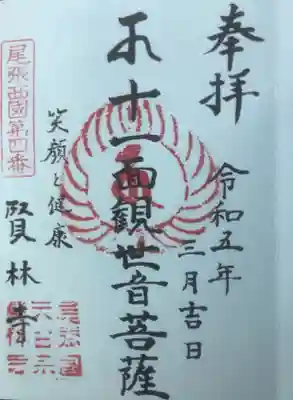 奉拝
令和五年
三月吉日
十一面観世音菩薩
笑顔と健康
賢林寺
尾張西國第四番